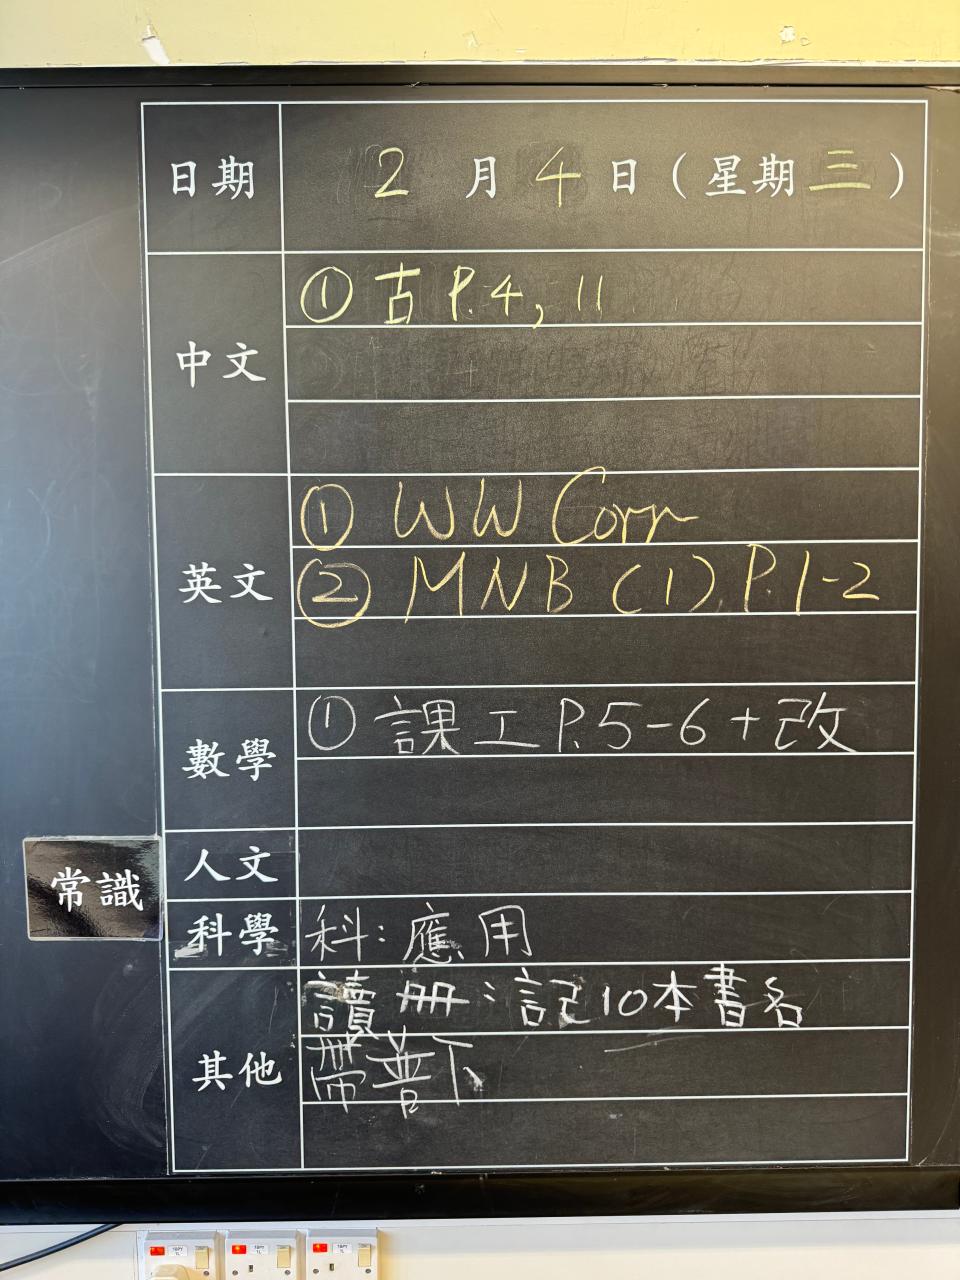 日期 2月4日(星期三)
中文 ①古 P.4, 11
英文 ① WW Corr
② MNB (1) P.1-2
數學 ①課工P.5-6+改
人文
常識
科學 科:應用
其他 讀冊:記10本書名
帶普下